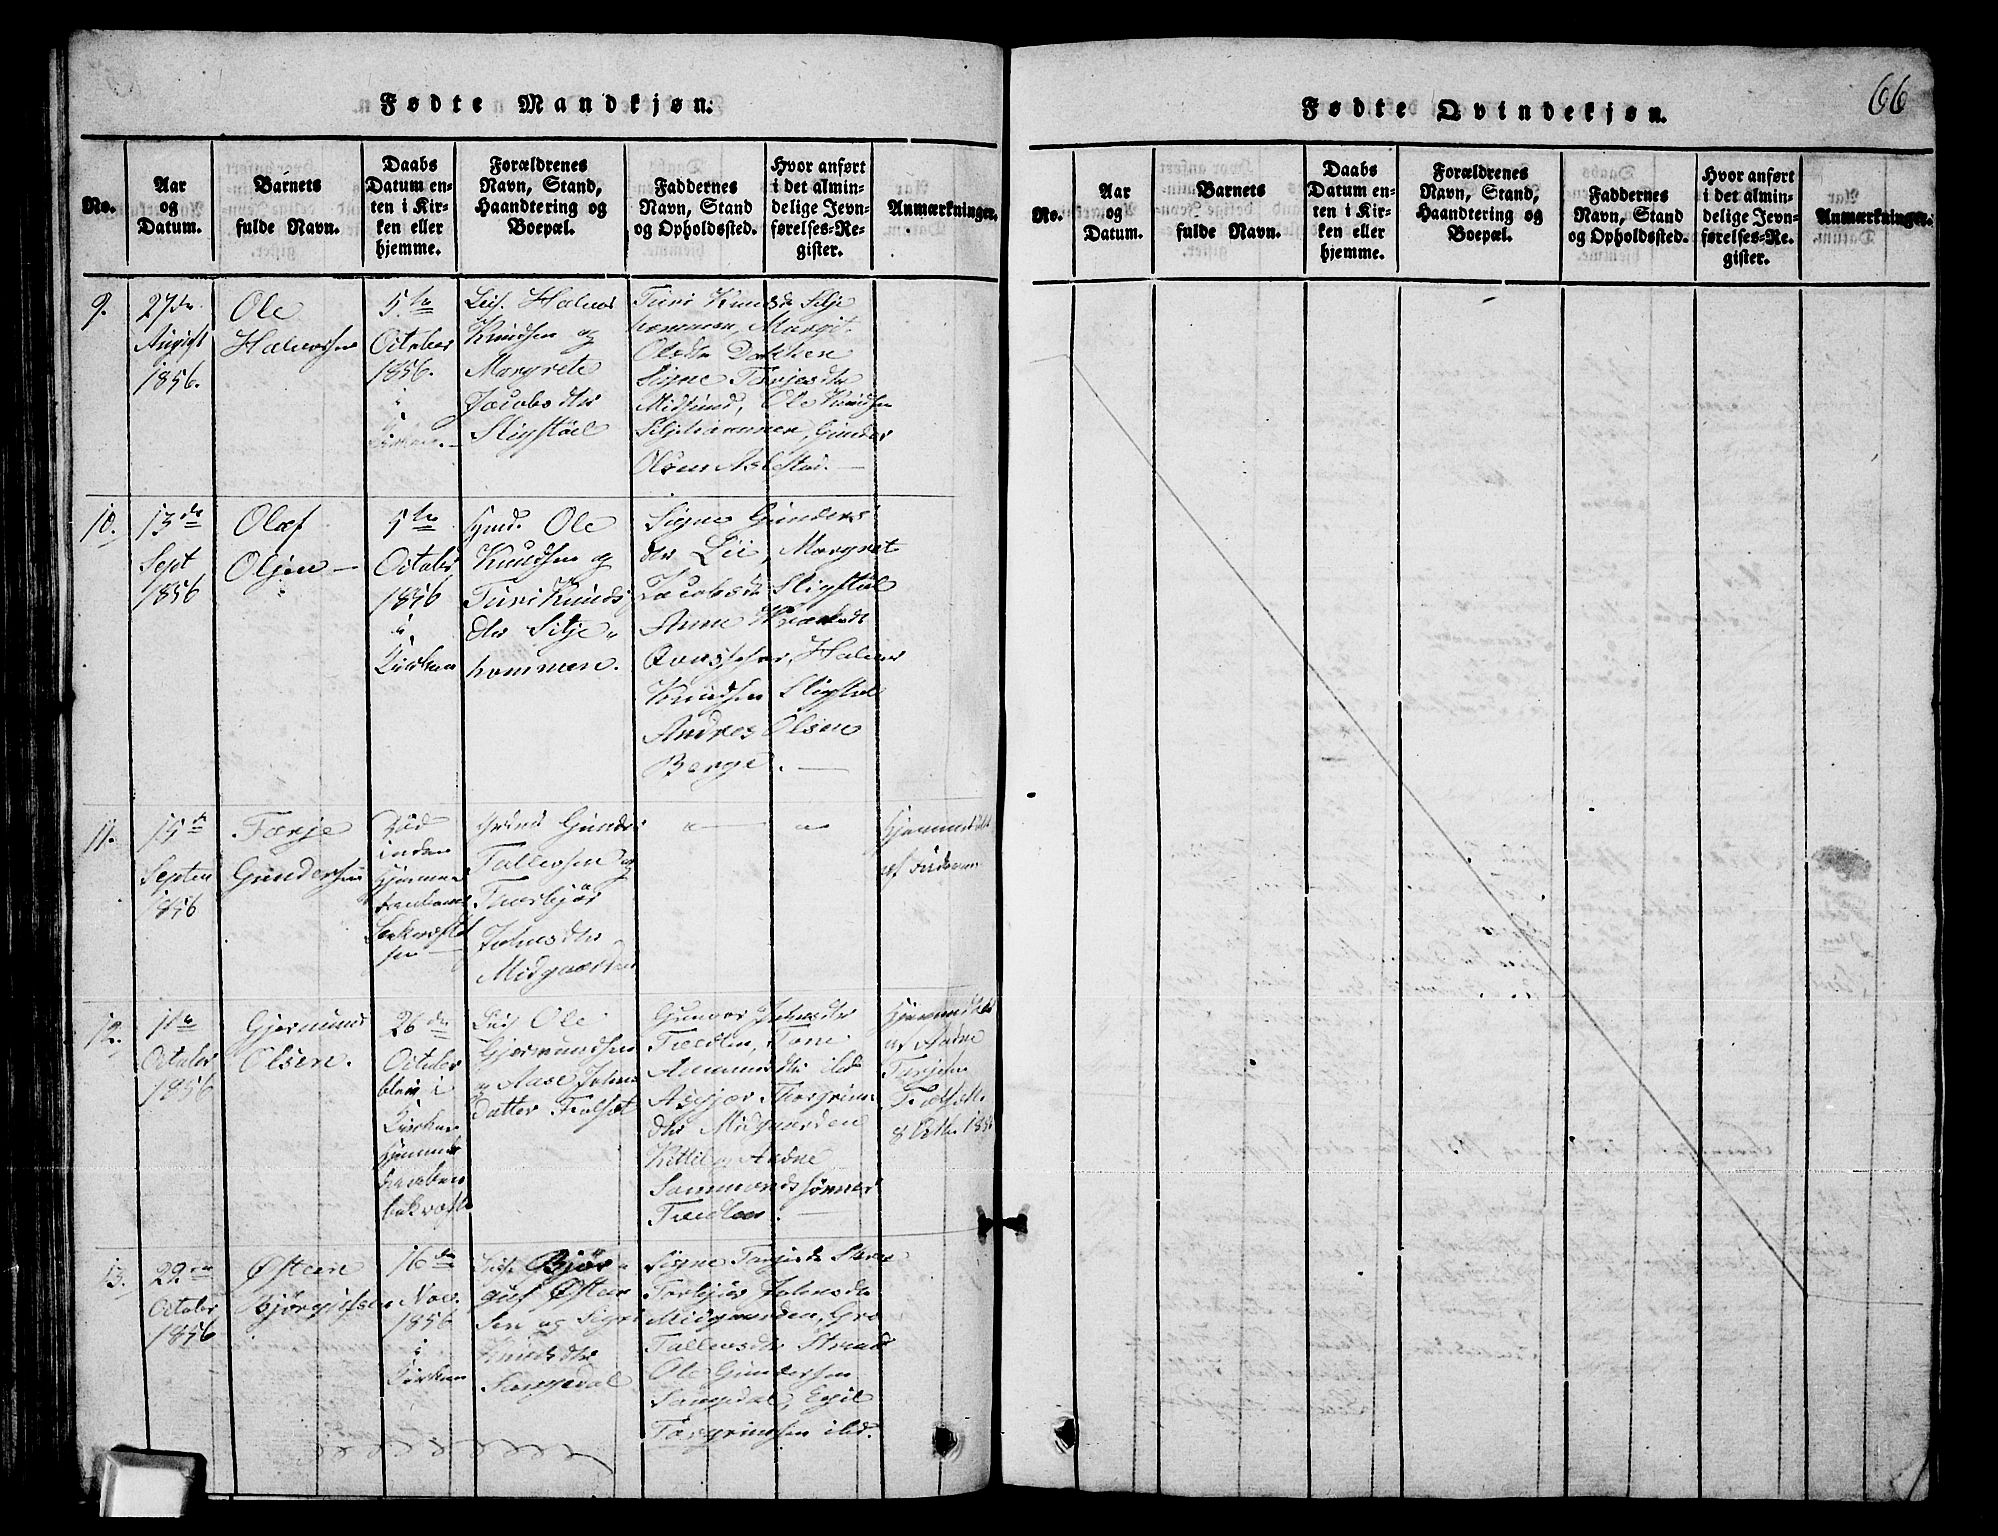 Fødte Mandkjøn.
No.
Aar
og
Datum.
Barnets
fulde Navn.
Daabs
Datum en-
ten i Kir-
ken eller
hjemme.
Forældrenes
Navn, Stand,
Haandtering og
Boepæl.
Faddernes
Navn, Stand
og Opholdssted.
Hvor anført
i det almin-
delige Jevn-
førelses-Re-
gister.
Anmærkninger.
9.
27de
August
1856.
Ole
Halvorsen
5te
October
1856.
i
Kirken
Leif. Halvor
Knudsen og
Margrete
Jacobsdtr
Sligstøel
Turi Knudsdtr Silje
kommen, Margit
Olsdtr Dokken
Signe Tarjesdtr
Midtsund, Ole Knudsen
Siljekommen, Gunder
Olsen
10.
13de
Sept
1856
Olaf
Olsen
5te
October
1856
i
Kirken
Ole
Knudsen og
Turi Knuds
dtr Silje
kommen.
Signe Gunders
dtr Lii, Margret
Jacobsdtr Sligstøel
Anne
Halvor
Knudsen Sligstøel
Andres Olsen
Berge.
11.
15de
Septem
1856
Tærje
Gundersen
Gunder
Tallevsen og
Thorbjør
Johnsdtr
Midgaarden
" "
Hjemmedøbt
af
12.
11te
October
1856
Gjermund
Olsen.
26de
October
blev i
Kirken
Hjemme
daaben
bekræftet
Leif Ole
Gjermundsen
og Aase Johns
datter Folsæt
Gunvor Johnsdtr
Tvedten, Tone
Aamundsdtr ibd
Asbjør Thorgrims
dtr Midgaarden
Kittil og Andne
Sammundssønner
Tvedten.
Hjemmedøbt
av Andne
Terjesen
Folsæt
8 Octb. 1856
13.
29de
October
1856
Østen
Bjørgufsen
16de
Nov.
1856
i
Kirken
Leif. Bjør
guf Østen
Sen og Signi
Knudsdtr
Songedal
Signe Tarjesdtr
Torbjør Johnsdtr
Midgaarden, Gro
Tallevsdtr Strand
Ole Gundersen
Songedal, Egil
Torgrimsen ibd.
66
Fødte Qvindekjøn.
No.
Aar
og
Datum.
Barnets
fulde Navn.
Daabs
Datum en-
ten i Kir-
ken eller
hjemme.
Forældrenes
Navn, Stand,
Haandtering og
Boepæl.
Faddernes
Navn, Stand
og Opholdssted.
Hvor anført
i det almin-
delige Jevn-
førelses-Re-
gister.
Anmærkninger.